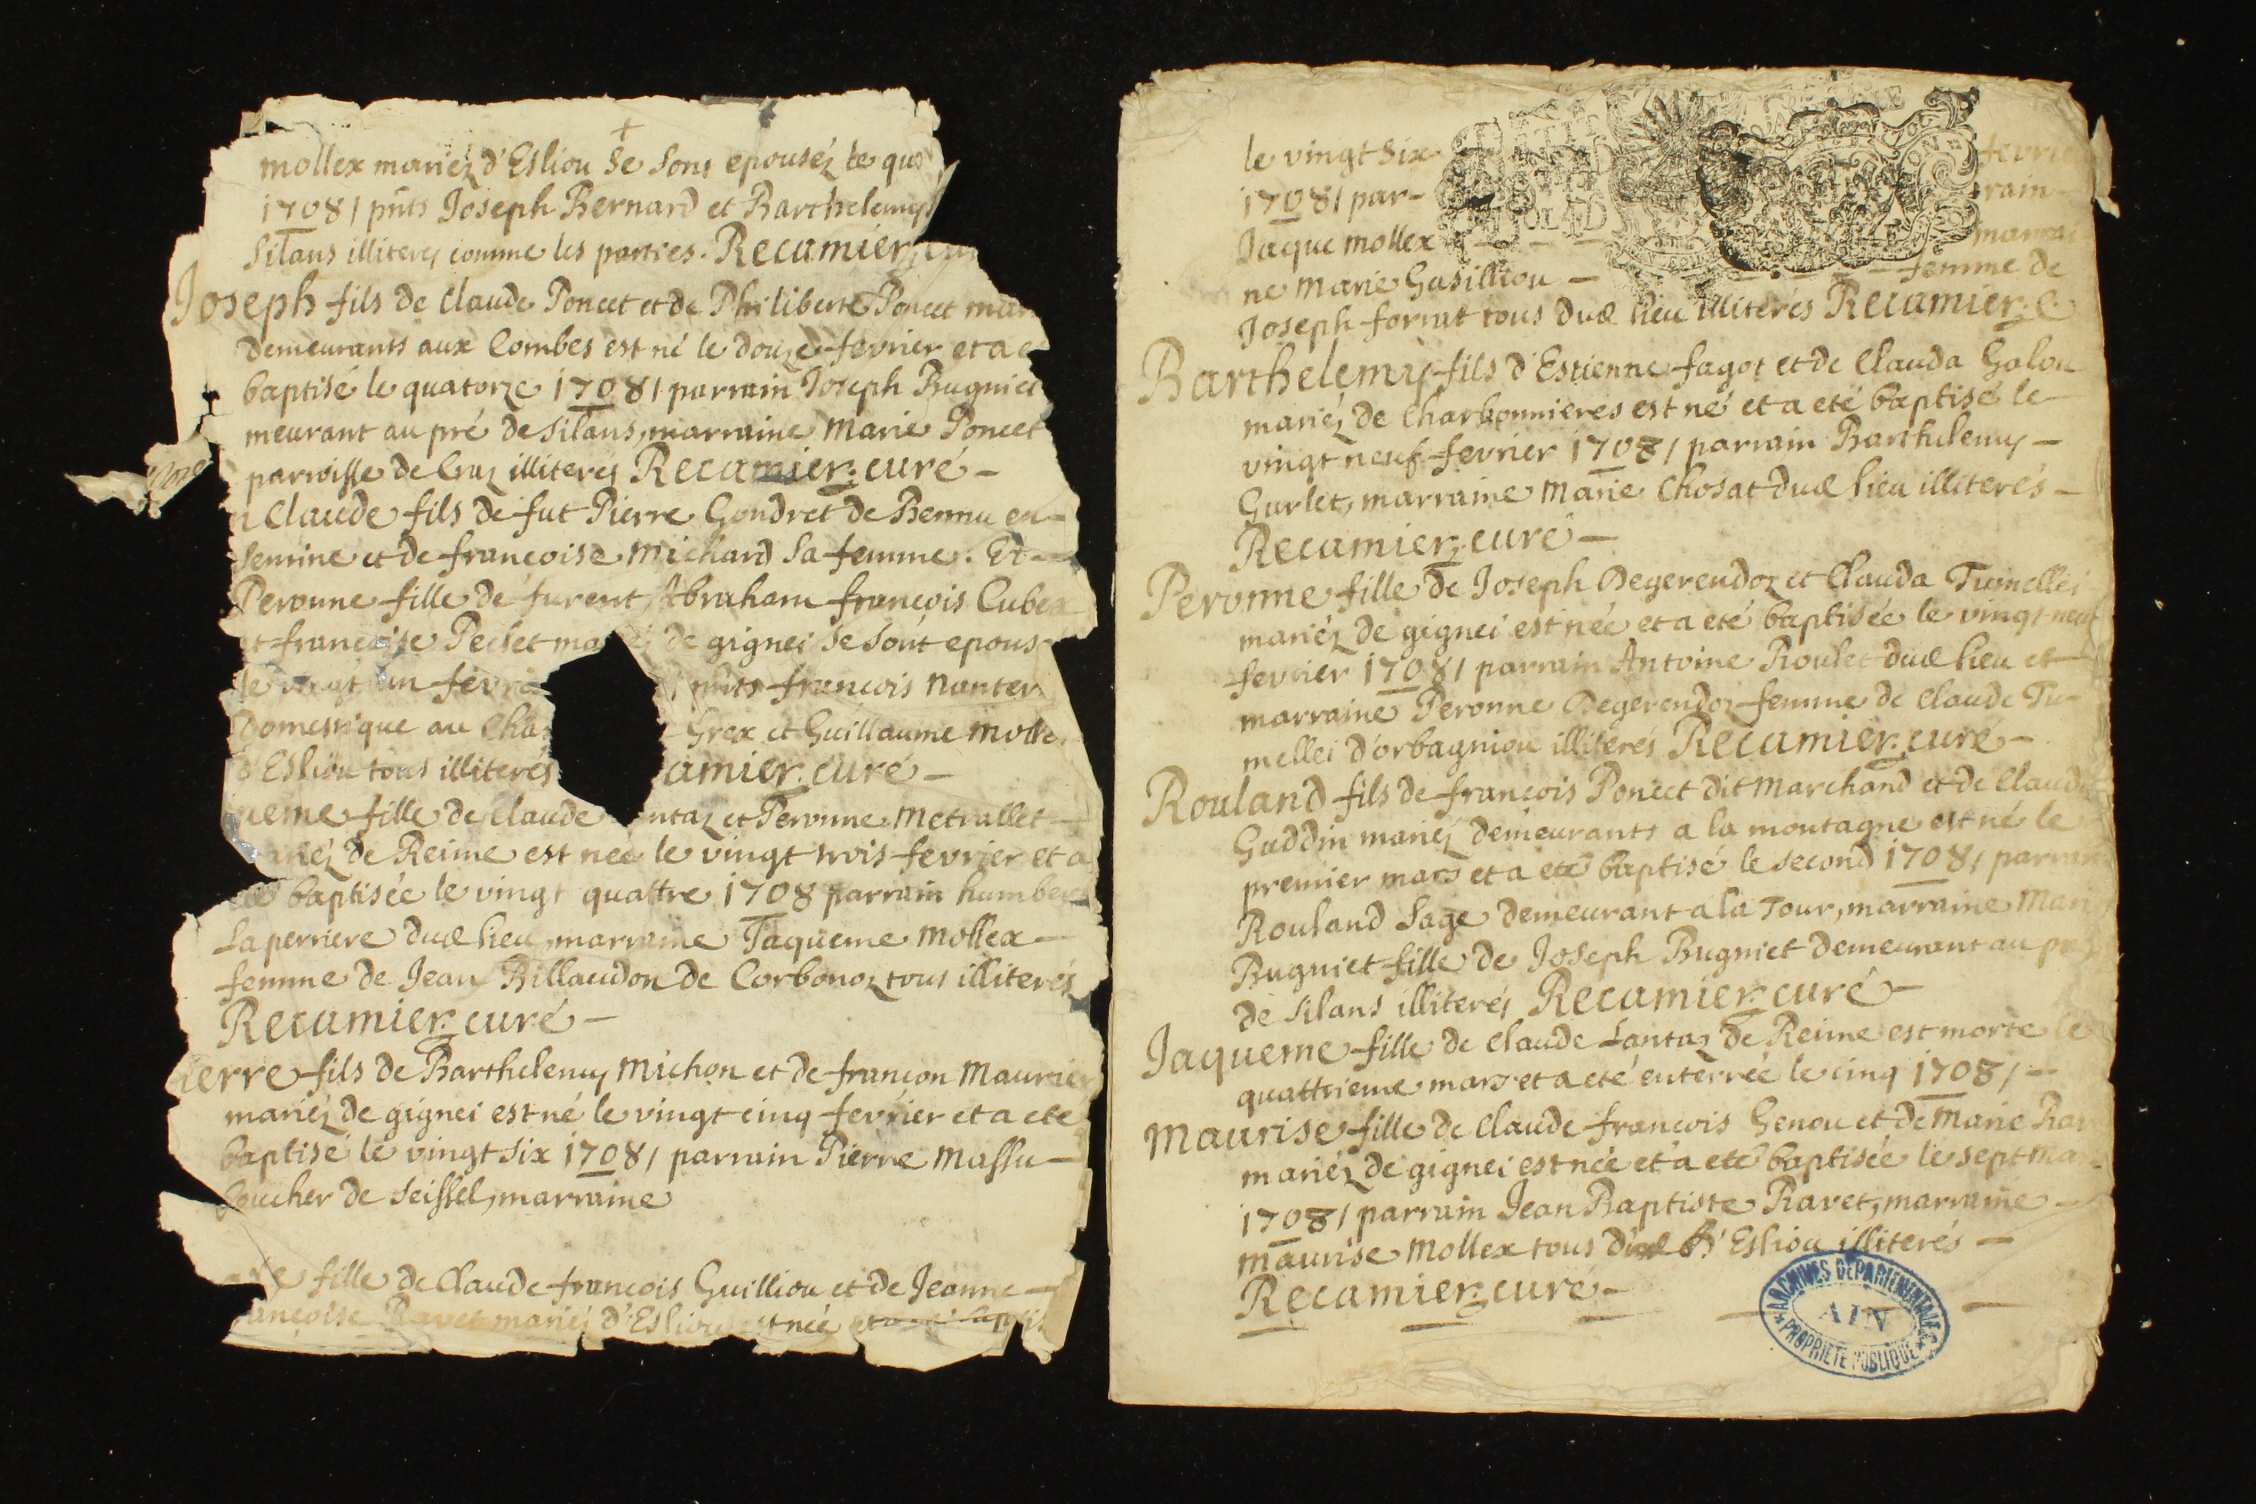 mollex mariéz d'Esliou se sont epouséz le qua
1708 / pnts Joseph Bernard et Barthelemy
Silans illiterez comme les parties. Recamier, cu
Joseph fils de Claude Poncet et de Philiberte Poncet mar
demeurants aux Combes est né le douze fevrier et a e
baptisé le quatorze 1708 / parrain Joseph Bugniet
meurant au pré de silans, marraine Marie Poncet
parroisse de Craz illiteréz Recamier: curé —
Claude fils de fut Pierre Gondret de Bennu en-
semine et de françoise Michard sa femme. Et —
Peronne fille de furent Abraham françois Cubex
et françoise Peclet mariéz de gignei se sont epous
le vingt un fevri pnts françois Nanter
Domestique au Cha Grex et Guillaume Molle
d'Esliou tous illiterés amier: curé —
ueme fille de Claude antaz et Peronne Metrallet —
mariéz de Reime est neé le vingt trois fevrier et a
eté baptisée le vingt quattre 1708 parrain humbert
Laperriere dud lieu, marraine Jaqueme Mollex —
femme de Jean Billaudon de Corbonoz tous illiterés
Recamier: curé —
ierre fils de Barthelemy Michon et de françon Maurier
mariéz de gignei est né le vingt cinq fevrier et a eté
baptisé le vingt six 1708 / parrain Pierre Massu —
boucher de seissel, marraine
fille de Claude françois Guilliou et de Jeanne —
ançoise Ravet mariéz d'Esliou est née et a eté baptis
le vingt six fevrie
1708 / par- rain —
Jaque mollex — — — marrai
ne Marie Gasilliou — — femme de
Joseph forrat tous dud lieu illiterés Recamier: c
Barthelemy fils d'Estienne fagot et de Clauda Galou
mariéz de Charbonnieres est né et a eté baptisé le
vingt neuf fevrier 1708 / parrain Barthelemy —
Gurlet, marraine Marie Chosat dud lieu illiterés —
Recamier: curé —
Peronne fille de Joseph Degerendoz et Clauda Tumellei
mariéz de gignei est née et a eté baptisée le vingt neuf
fevrier 1708 / parrain Antoine Roulet dud lieu et
marraine Peronne Degerendoz femme de Claude Tu-
mellei d'orbagniou illiterés Recamier: curé —
Rouland fils de françois Poncet dit Marchand et de Claud
Guddin mariéz demeurants a la montagne est né le
premier mars et a eté baptisé le second 1708 / parrain
Rouland Sage demeurant a la Tour, marraine Mari
Bugniet fille de Joseph Bugniet demeurant au pré
de silans illiterés Recamier: curé —
Jaqueme fille de Claude Lantaz de Reime est morte le
quattrieme mars et a eté enterrée le cinq 1708 / —
Maurise fille de Claude françois Genou et de Marie Rav
mariéz de gignei est née et a eté baptisée le sept ma
1708 / parrain Jean Baptiste Ravet, marraine —
Maurise Mollex tous d'Esliou illiterés —
Recamier: curé —
ARCHIVES DÉPARTEMENTALES
AIN
PROPRIÉTÉ PUBLIQUE